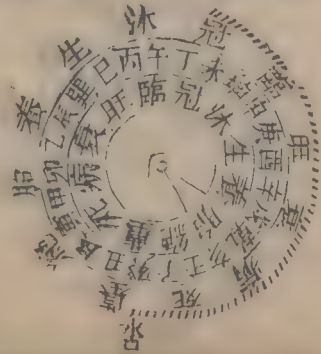 生沐冠臨旺衰病死墓絶胎養
巳丙午丁未坤申庚酉辛戌乾亥壬子癸丑艮寅甲卯乙辰巽
旺臨冠沐生養胎絶墓死病衰